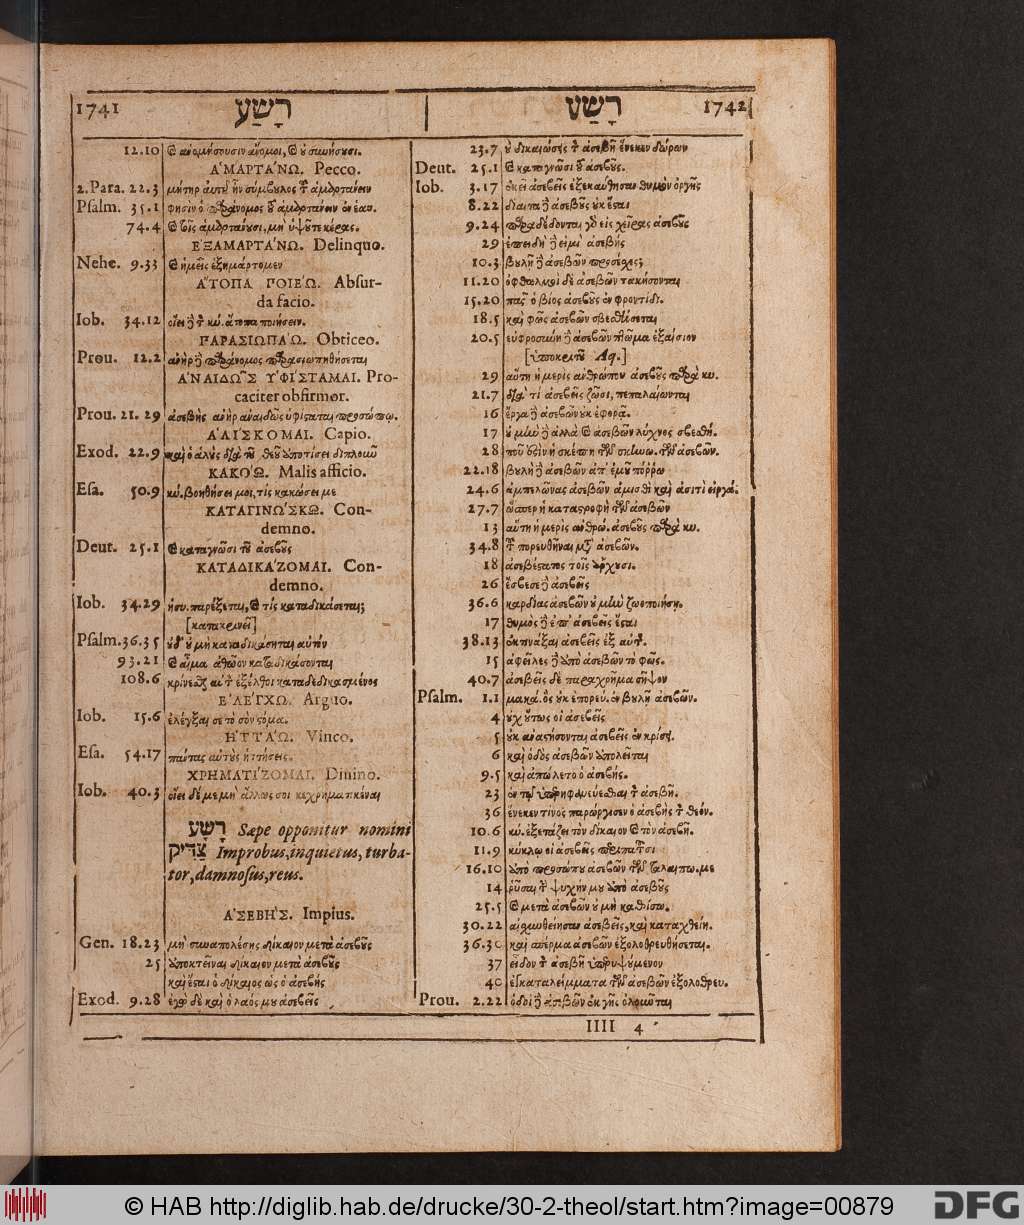 1741 רָשַׁע
12.10 ϗ ἀνομήσουσιν ἄνομοι, ϗ οὐ συνήσουσι.
ἉΜΑΡΤΆΝΩ. Pecco.
2. Para. 22.3 μήτηρ αὐτοῦ ἦν σύμβουλος τοῦ ἁμαρτάνειν
Psalm. 35.1 φησὶν ὁ παράνομος τοῦ ἁμαρτάνειν ἐν ἑαυ.
74.4 ϗ τοῖς ἁμαρτάνουσι, μὴ ὑψοῦτε κέρας.
ἘΞΑΜΑΡΤΆΝΩ. Delinquo.
Nehe. 9.33 ϗ ἡμεῖς ἐξημάρτομεν
ἌΤΟΠΑ ΠΟΙΈΩ. Absur-
da facio.
Iob. 34.12 οἴει τὸν κύ. ἄτοπα ποιήσειν.
ΠΑΡΑΣΙΩΠΆΩ. Obticeo.
Prou. 12.2 ἀνὴρ παράνομος παρασιωπηθήσεται
ἈΝΑΙΔΩ͂Σ ὙΦΊΣΤΑΜΑΙ. Pro-
caciter obfirmor.
Prou. 21. 29 ἀσεβὴς ἀνὴρ ἀναιδῶς ὑφίσταται προσώπῳ.
ἉΛΊΣΚΟΜΑΙ. Capio.
Exod. 22.9 καὶ ὁ ἁλοὺς διὰ τοῦ θεοῦ ἀποτίσει διπλοῦν
ΚΑΚΌΩ. Malis afficio.
Esa. 50.9 κύ. βοηθήσει μοι, τίς κακώσει με
ΚΑΤΑΓΙΝΏΣΚΩ. Con-
demno.
Deut. 25.1 ϗ καταγνῶσι τοῦ ἀσεβοῦς
ΚΑΤΑΔΙΚΆΖΟΜΑΙ. Con-
demno.
Iob. 34.29 ἡσυ. παρέξεται, ϗ τίς καταδικάσεται;
[κατακρινεῖ]
Psalm. 36.35 οὐδ' οὐ μὴ καταδικάσηται αὐτόν
93.21 ϗ αἷμα ἀθῶον καταδικάσονται
108.6 κρίνεσθαι αὐτὸν ἐξέλθοι καταδεδικασμένος
ἘΛΈΓΧΩ. Arguo.
Iob. 15.6 ἐλέγξαι σε τὸ σὸν στόμα.
ἩΤΤΆΩ. Vinco.
Esa. 54.17 πάντας αὐτοὺς ἡττήσεις.
ΧΡΗΜΑΤΊΖΟΜΑΙ. Diuino.
Iob. 40.3 οἴει δέ με μὴ ἄλλως σοι κεχρηματικέναι
רָשָׁע Sæpe opponitur nomini
צַדִּיק Improbus, inquietus, turba-
tor, damnosus, reus.
ἈΣΕΒΉΣ. Impius.
Gen. 18.23 μὴ συναπολέσῃς δίκαιον μετὰ ἀσεβοῦς
25 ἀποκτεῖναι δίκαιον μετὰ ἀσεβοῦς
καὶ ἔσται ὁ δίκαιος ὡς ὁ ἀσεβής
Exod. 9.28 ἐγὼ δὲ καὶ ὁ λαός μου ἀσεβεῖς
רָשַׁע 1742
23.7 οὐ δικαιώσεις τὸν ἀσεβῆ ἕνεκεν δώρων
Deut. 25.1 ϗ καταγνῶσι τοῦ ἀσεβοῦς.
Iob. 3.17 ἐκεῖ ἀσεβεῖς ἐξεκαύθησαν θυμὸν ὀργῆς
8.22 δίαιτα ἀσεβοῦς οὐκ ἔσται
9.24 παραδέδονται γὰρ εἰς χεῖρας ἀσεβοῦς
29 ἐπειδὴ εἰμὶ ἀσεβής
10.3 βουλῇ ἀσεβῶν προσέσχες;
11.20 ὀφθαλμοὶ δὲ ἀσεβῶν τακήσονται
15.20 πᾶς ὁ βίος ἀσεβοῦς ἐν φροντίδι.
18.5 καὶ φῶς ἀσεβῶν σβεσθήσεται
20.5 εὐφροσύνη ἀσεβῶν πτῶμα ἐξαίσιον
[ὑποκριτῶν Aq.]
29 αὕτη ἡ μερὶς ἀνθρώπου ἀσεβοῦς παρὰ κυ.
21.7 διὰ τί ἀσεβεῖς ζῶσι, πεπαλαίωνται
16 ἔργα ἀσεβῶν οὐκ ἐφορᾷ.
17 οὐ μὴν ἀλλὰ ϗ ἀσεβῶν λύχνος σβεσθή.
28 ποῦ ἐστιν ἡ σκέπη τῶν σκηνω. τῶν ἀσεβῶν.
22.18 βουλὴ ἀσεβῶν ἀπ' ἐμοῦ πόρρω
24.6 ἀμπελῶνας ἀσεβῶν ἀμισθὶ καὶ ἀσιτὶ εἰργά.
27.7 ὥσπερ ἡ καταστροφὴ τῶν ἀσεβῶν
13 αὕτη ἡ μερὶς ἀνθρώ. ἀσεβοῦς παρὰ κυ.
34.8 τοῦ πορευθῆναι μετ' ἀσεβῶν.
18 ἀσεβέστατος τοῖς ἄρχουσι.
26 ἔσβεσε ἀσεβεῖς
36.6 καρδίας ἀσεβῶν οὐ μὴν ζωοποιήσῃ.
17 θυμὸς ἐπ' ἀσεβεῖς ἔσται
38.13 ἐκτινάξαι ἀσεβεῖς ἐξ αὐτῆς.
15 ἀφεῖλες ἀπὸ ἀσεβῶν τὸ φῶς.
40.7 ἀσεβεῖς δὲ παραχρῆμα σῆψον
Psalm. 1.1 μακά. ὃς οὐκ ἐπορεύ. ἐν βουλῇ ἀσεβῶν.
4 οὐχ οὕτως οἱ ἀσεβεῖς
5 οὐκ ἀναστήσονται ἀσεβεῖς ἐν κρίσει.
6 καὶ ὁδὸς ἀσεβῶν ἀπολεῖται
9.5 καὶ ἀπώλετο ὁ ἀσεβής.
23 ἐν τῷ ὑπερηφανεύεσθαι τὸν ἀσεβῆ.
36 ἕνεκεν τίνος παρώργισεν ὁ ἀσεβὴς τὸν θεόν.
10.6 κύ. ἐξετάζει τὸν δίκαιον ϗ τὸν ἀσεβῆ.
11.9 κύκλῳ οἱ ἀσεβεῖς περιπατοῦσι
16.10 ἀπὸ προσώπου ἀσεβῶν τῶν ταλαιπω. με
14 ῥῦσαι τὴν ψυχήν μου ἀπὸ ἀσεβοῦς
25.5 ϗ μετὰ ἀσεβῶν οὐ μὴ καθίσω.
30.22 αἰσχυνθείησαν ἀσεβεῖς, καὶ καταχθείη.
36.30 καὶ σπέρμα ἀσεβῶν ἐξολοθρευθήσεται.
37 εἶδον τὸν ἀσεβῆ ὑπερυψούμενον
40 ἐγκαταλείμματα τῶν ἀσεβῶν ἐξολοθρευ.
Prou. 2.22 ὁδοὶ ἀσεβῶν ἐκ γῆς ὀλοῦνται
IIII 4
© HAB http://diglib.hab.de/drucke/30-2-theol/start.htm?image=00879 DFG